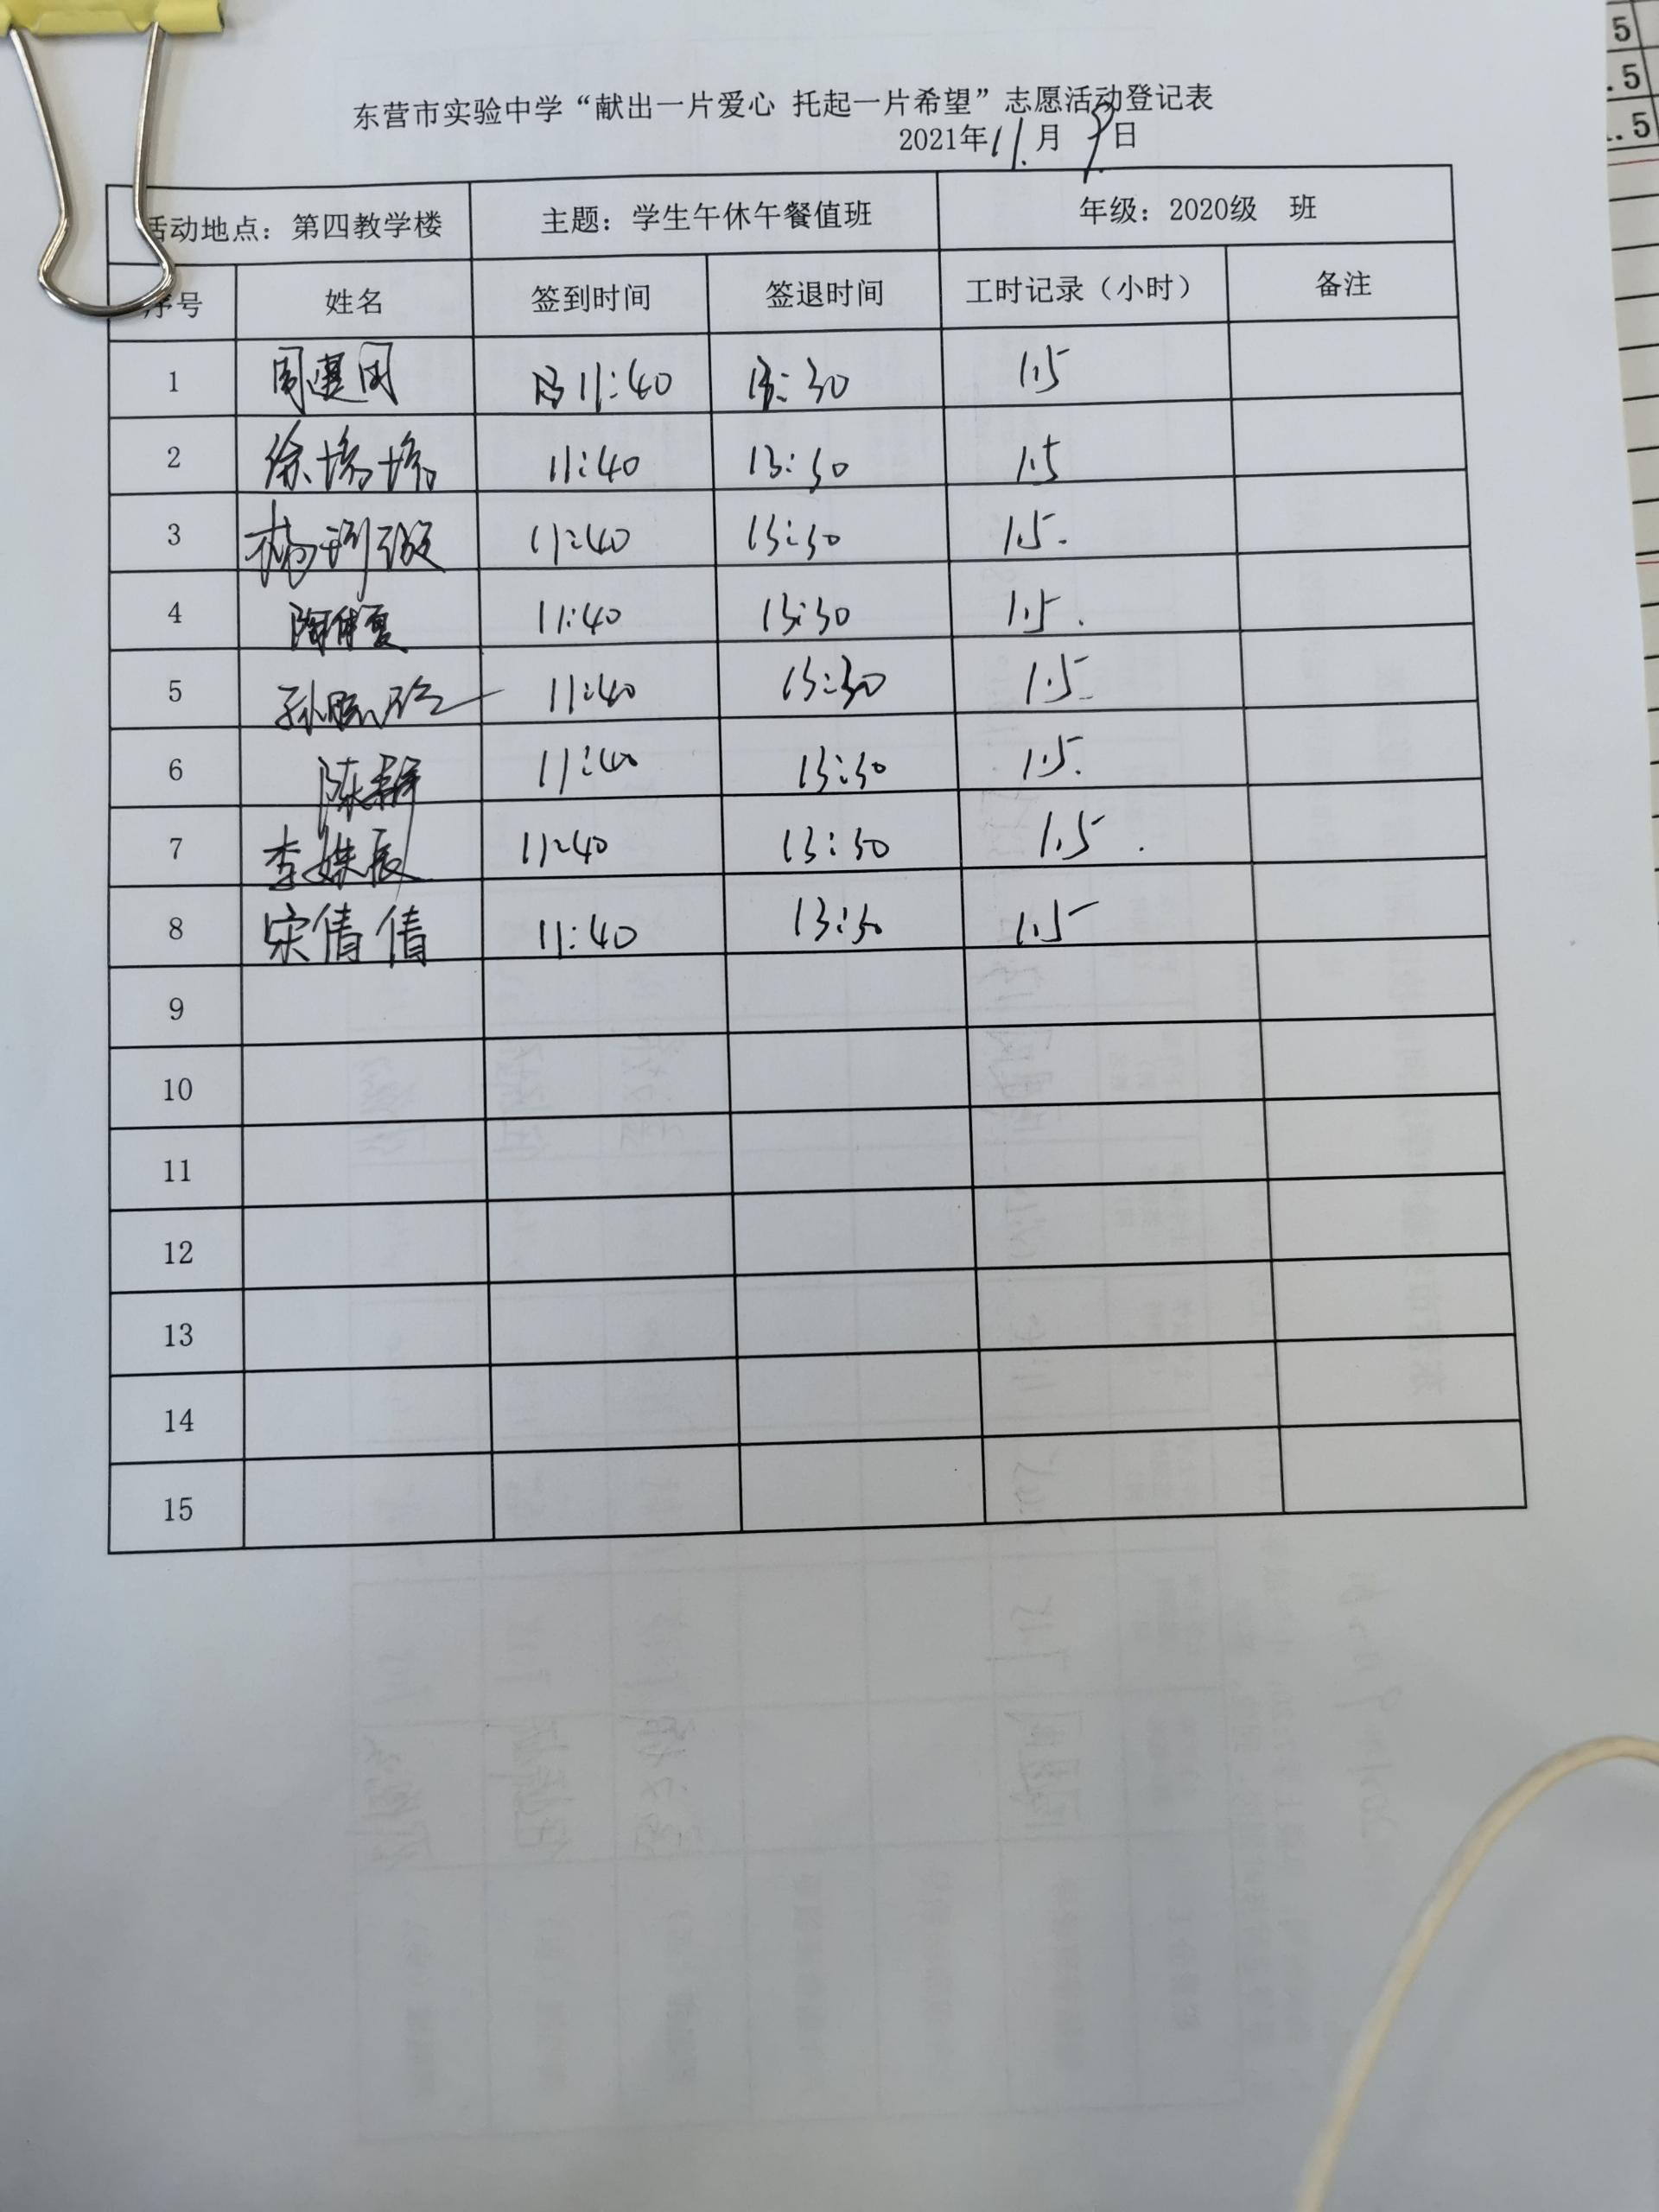 东营市实验中学“献出一片爱心 托起一片希望”志愿活动登记表
2021年11月9日
活动地点：第四教学楼 主题：学生午休午餐值班 年级：2020级 班
序号 姓名 签到时间 签退时间 工时记录（小时） 备注
1 周 11:40 13:30 1.5
2 徐 11:40 13:30 1.5
3 杨 11:40 13:30 1.5.
4 陶 11:40 13:30 1.5.
5 孙 11:40 13:30 1.5
6 陈 11:40 13:30 1.5.
7 李姝辰 11:40 13:30 1.5.
8 宋倩倩 11:40 13:30 1.5
9
10
11
12
13
14
15
5
.5
.5